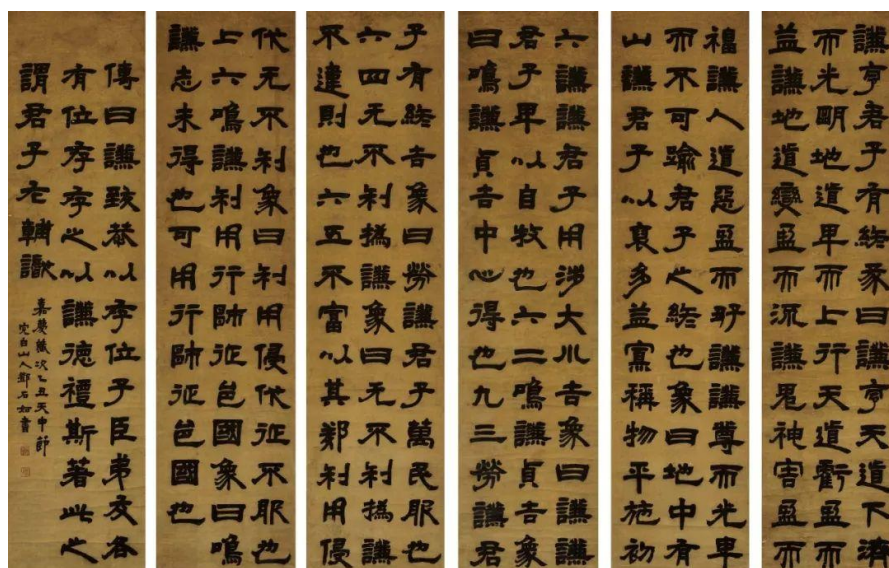 謙亨君子有終彖曰謙亨天道下濟
而光明地道卑而上行天道虧盈而
益謙地道變盈而流謙鬼神害盈而
福謙人道惡盈而好謙謙尊而光卑
而不可踰君子之終也象曰地中有
山謙君子以裒多益寡稱物平施初
六謙謙君子用涉大川吉象曰謙謙
君子卑以自牧也六二鳴謙貞吉象
曰鳴謙貞吉中心得也九三勞謙君
子有終吉象曰勞謙君子萬民服也
六四无不利撝謙象曰无不利撝謙
不違則也六五不富以其鄰利用侵
伐无不利象曰利用侵伐征不服也
上六鳴謙利用行師征邑國象曰鳴
謙志未得也可用行師征邑國也
傳曰謙致恭以存位子臣弟友各
有位存存之以謙德禮斯著此之
謂君子左輔
嘉慶歲次乙丑天中節
完白山人鄧石如書